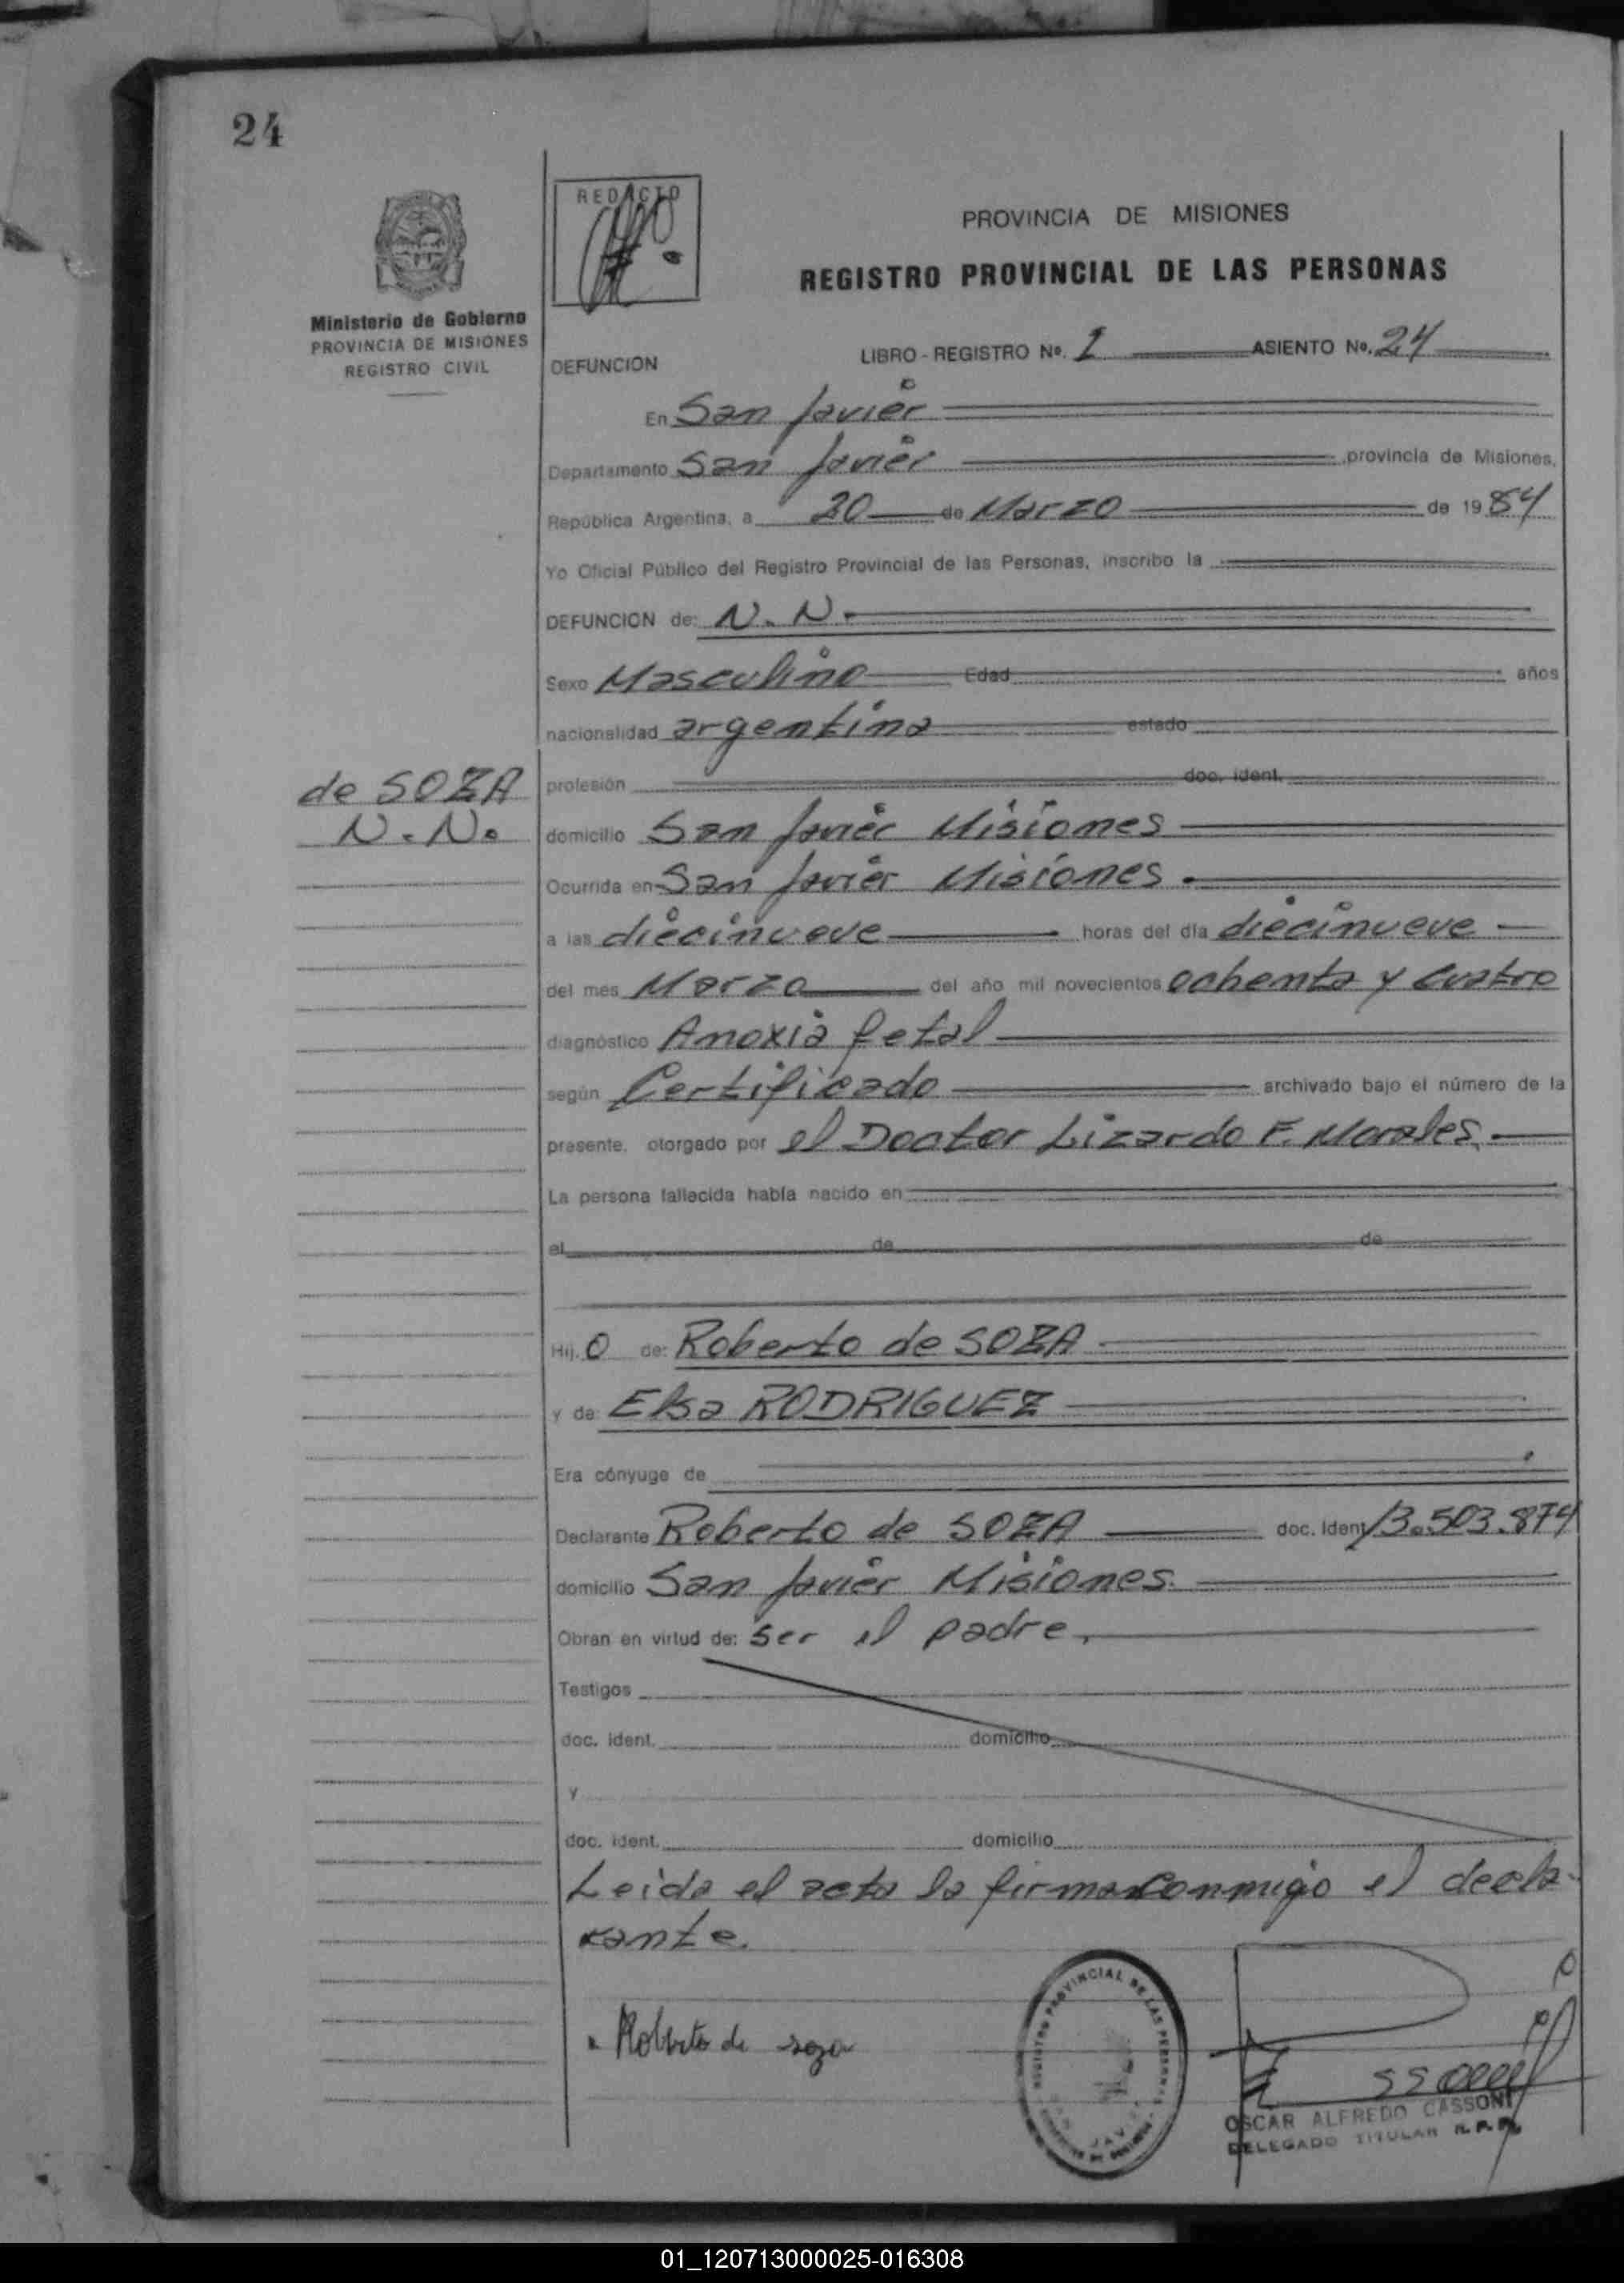 24
REDACTO
PROVINCIA DE MISIONES
REGISTRO PROVINCIAL DE LAS PERSONAS
Ministerio de Gobierno
PROVINCIA DE MISIONES
REGISTRO CIVIL
DEFUNCION
LIBRO - REGISTRO Nº. 1 ASIENTO Nº. 24
En San Javier
Departamento San Javier provincia de Misiones,
República Argentina, a 20 de Marzo de 1984
Yo Oficial Público del Registro Provincial de las Personas, inscribo la
DEFUNCION de: N. N.
Sexo Masculino Edad años
nacionalidad argentina estado
de SOZA
N. N.
profesión doc. ident.
domicilio San Javier Misiones
Ocurrida en San Javier Misiones.
a las diecinueve horas del día diecinueve
del mes Marzo del año mil novecientos ochenta y cuatro
diagnóstico Anoxia fetal
según Certificado archivado bajo el número de la
presente, otorgado por el Doctor Lizardo F. Morales.
La persona fallecida había nacido en
el de de
Hij. o de: Roberto de SOZA
y de: Elsa RODRIGUEZ
Era cónyuge de
Declarante Roberto de SOZA doc. Ident 13.503.874
domicilio San Javier Misiones.
Obran en virtud de: ser el padre.
Testigos
doc. ident. domicilio
y
doc. ident. domicilio
Leida el acta la firma conmigo el decla-
rante.
Roberto de soza
REGISTRO PROVINCIAL DE LAS PERSONAS
OSCAR ALFREDO CASSONI
DELEGADO TITULAR R.P.P.
01_120713000025-016308